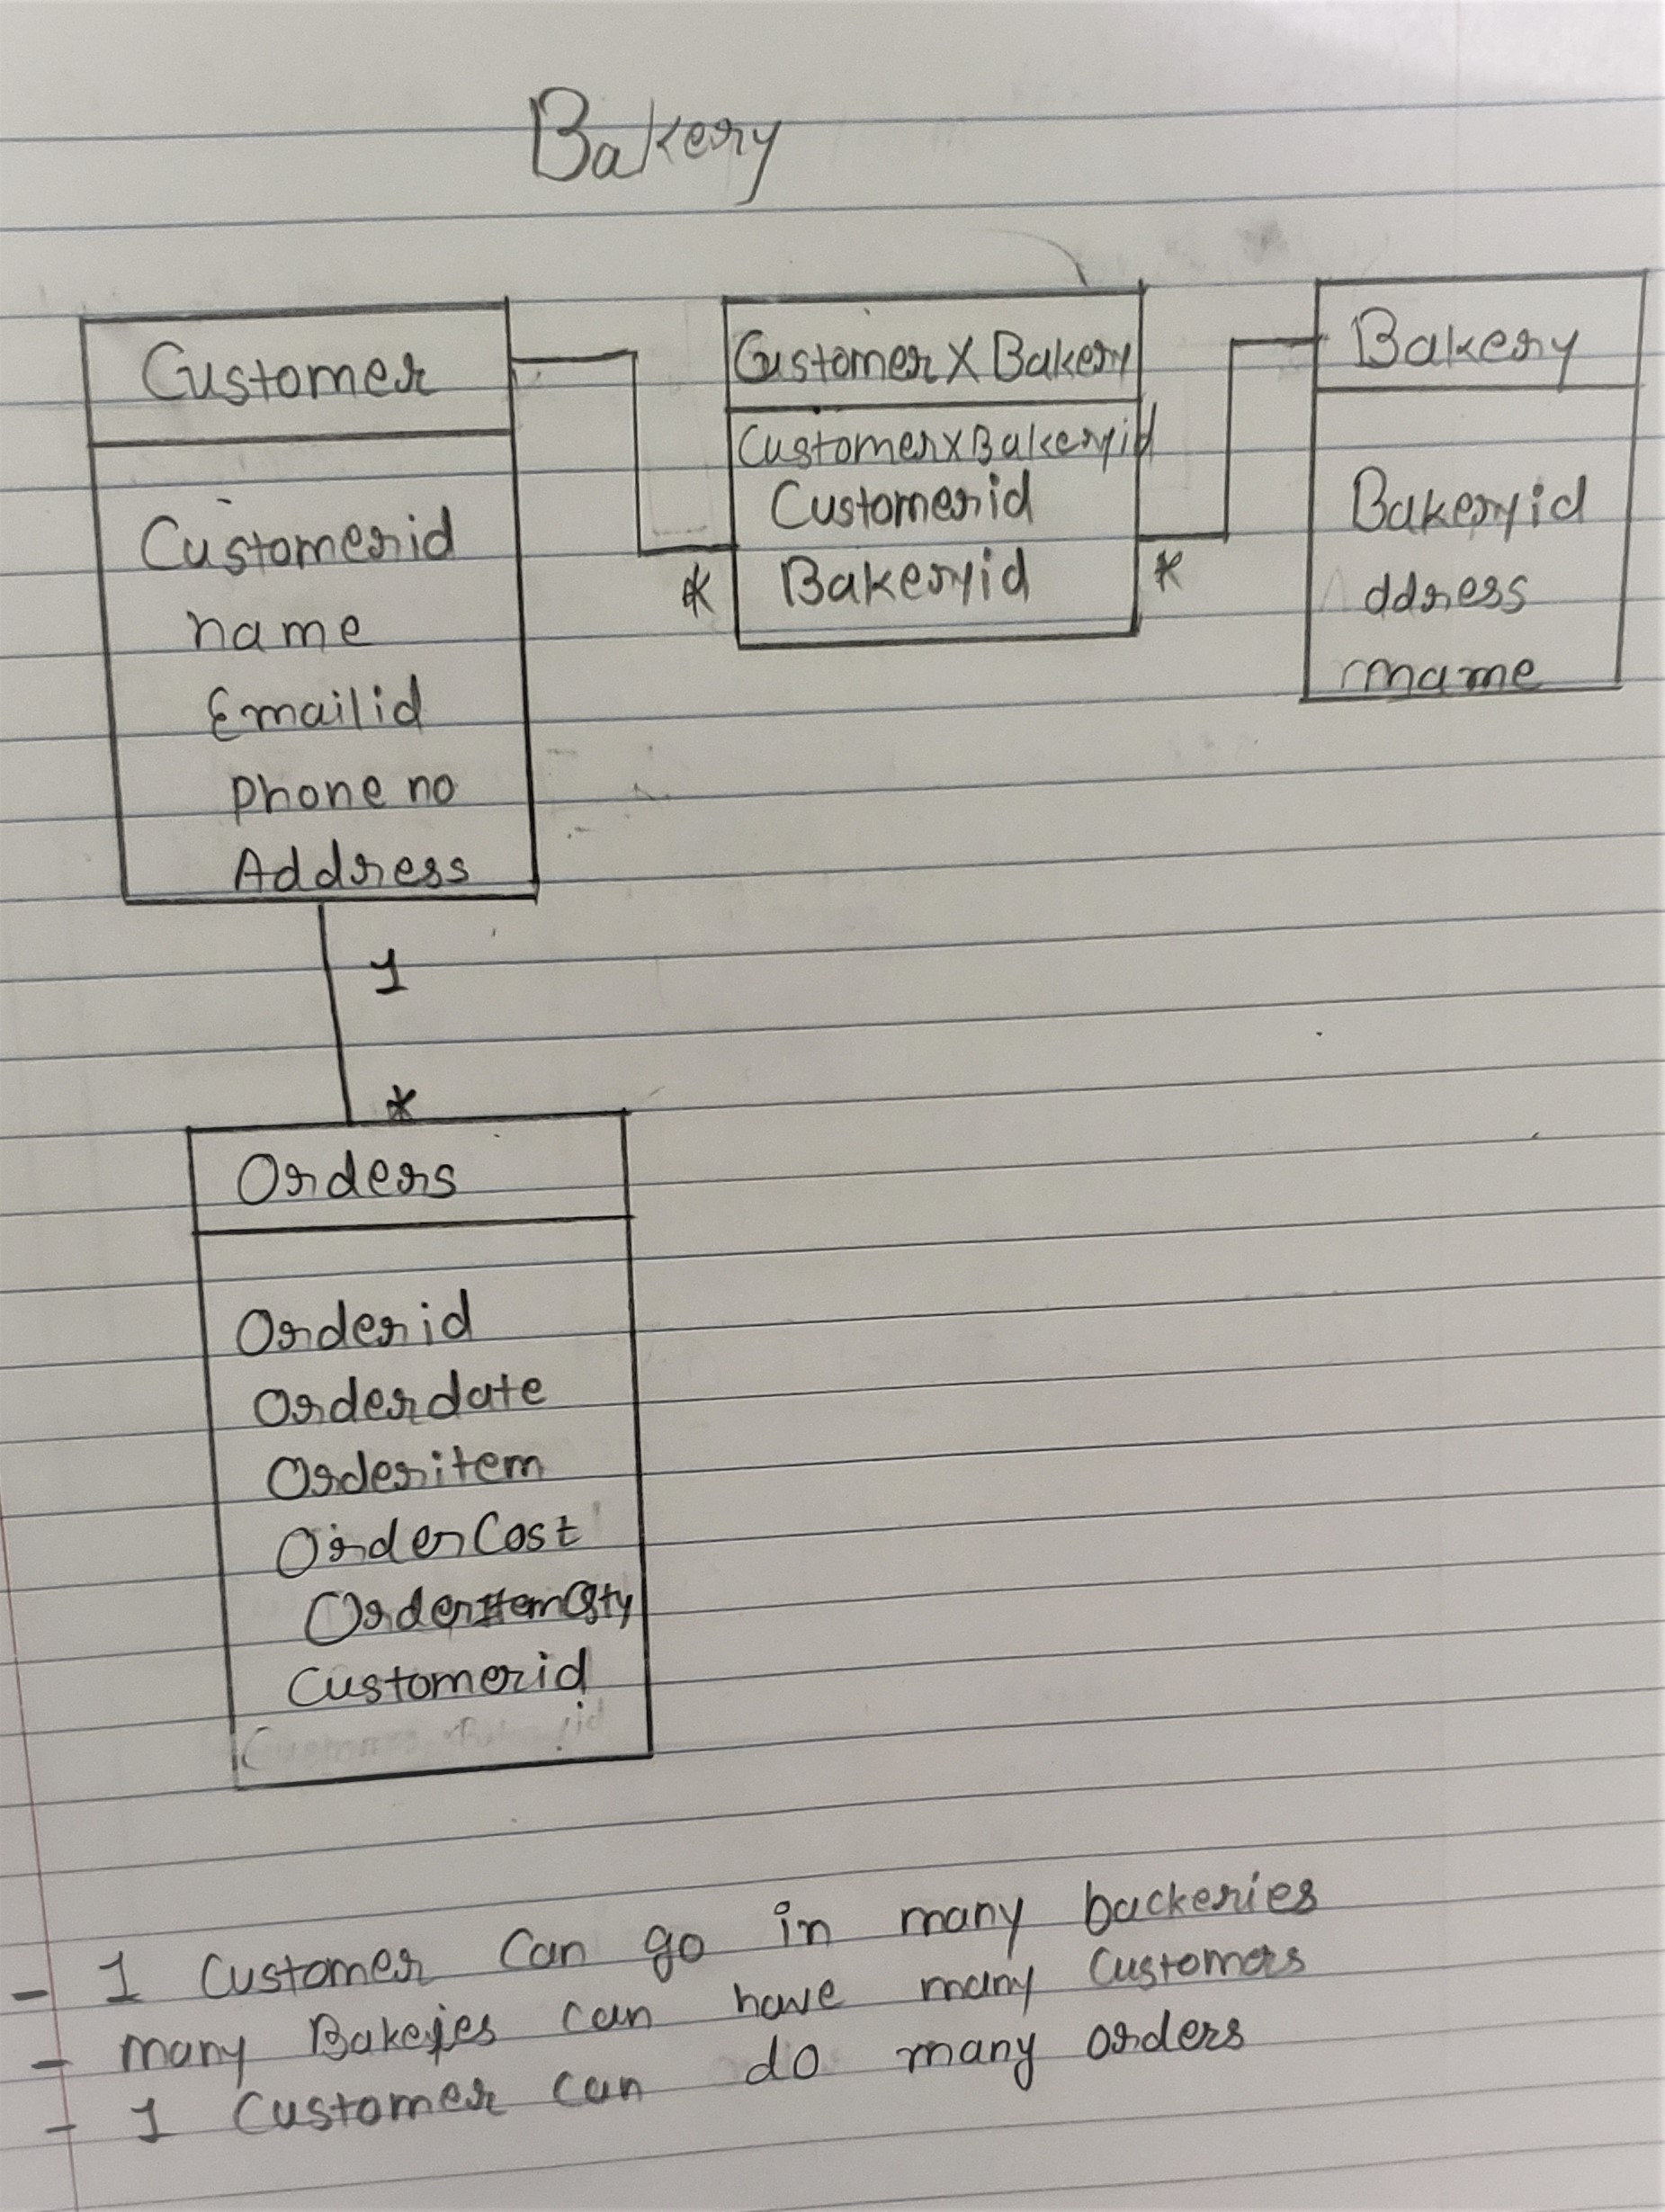 Bakery
Customer
Customerid
name
Emailid
phone no
Address
Customer X Bakery
CustomerxBakeryid
Customerid
Bakeryid
*
*
Bakery
Bakeryid
ddress
name
1
*
Orders
Orderid
Orderdate
Orderitem
OrderCost
OrderitemQty
Customerid
- 1 Customer Can go in many backeries
- many Bakeies can have many Customers
- 1 Customer can do many orders